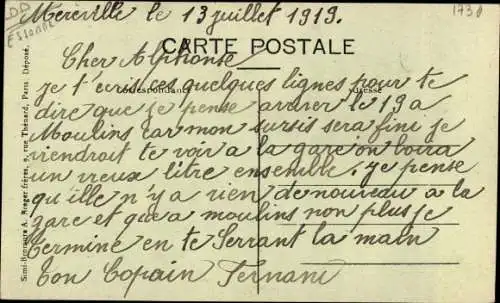 DD
ESSONNE
1738
Mereville le 13 juillet 1919.
CARTE POSTALE
Cher Alphonse
Correspondance
Adresse
je t'ecris ces quelques lignes pour te
dire que je pense arriver le 19 a
Moulins car mon sursis sera fini je
viendrait te voir a la gare on boira
un vieux litre ensemble. je pense
qu'ille n'y a rien de nouveau a la
gare et que a moulins non plus je
termine en te Serrant la main
Ton Copain Fernand
Simi-Bromure A. Breger frères, 9, rue Thénard, Paris. Déposé.